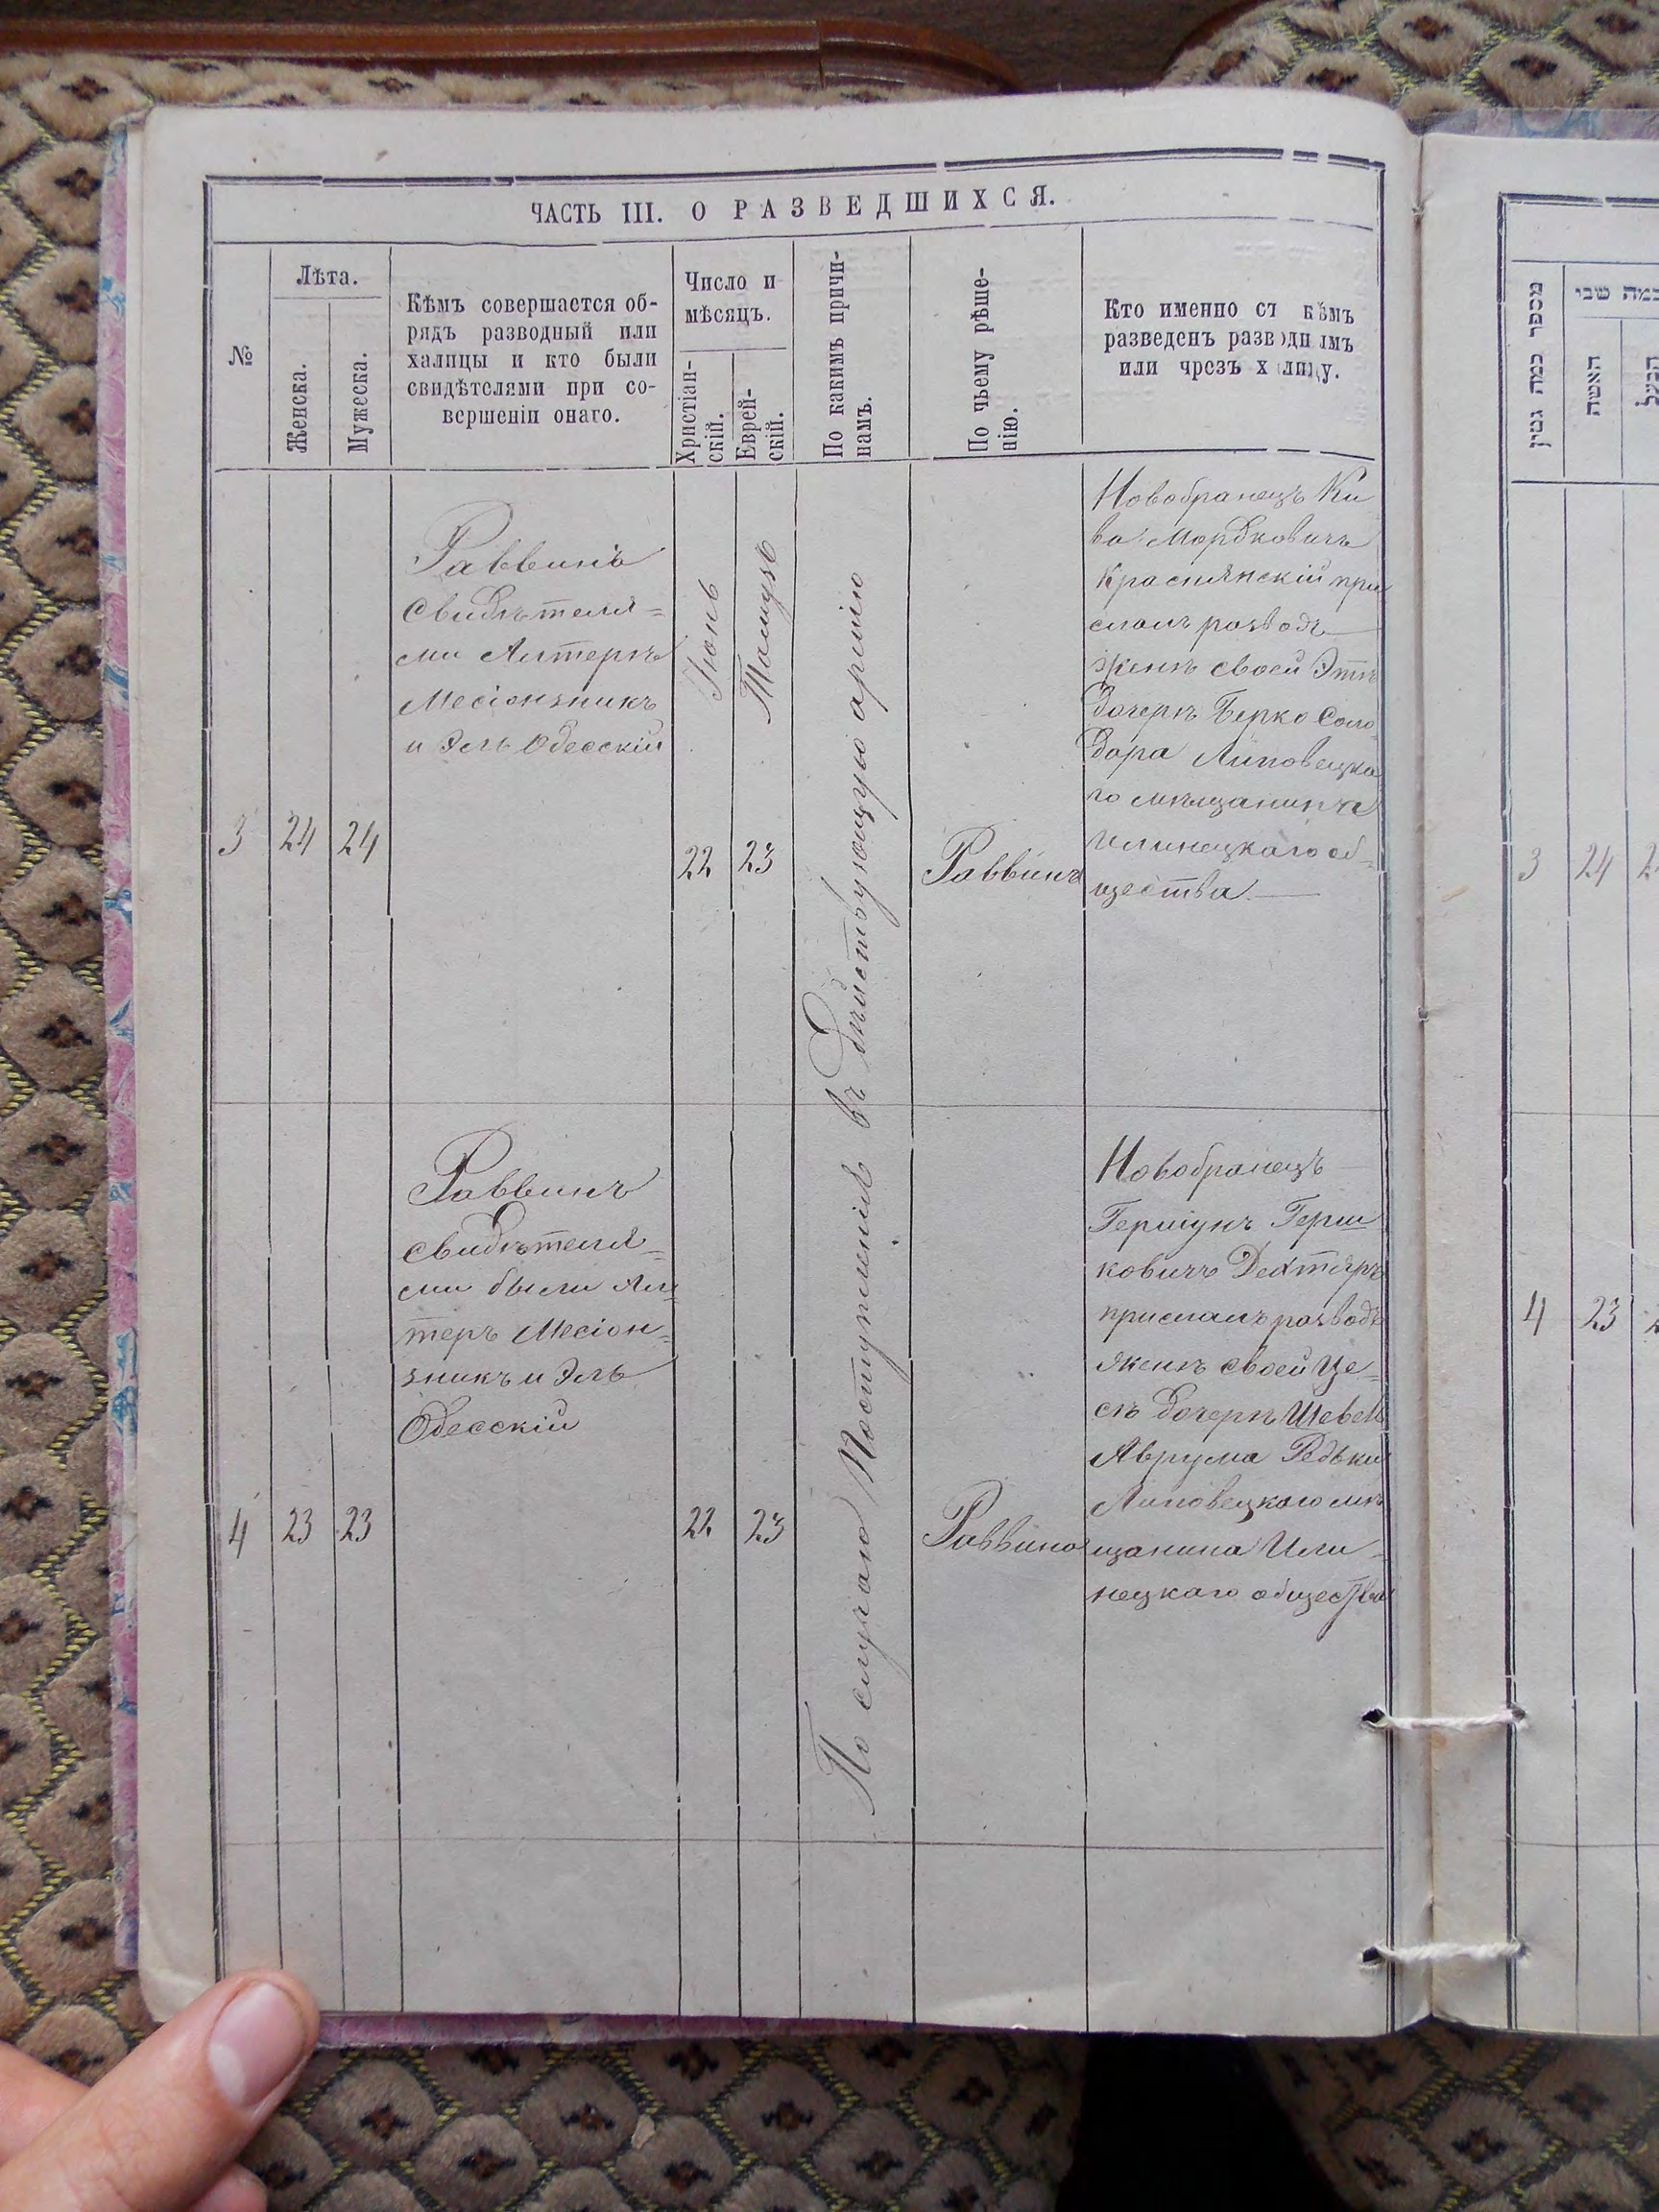 ЧАСТЬ III. О РАЗВЕДШИХСЯ.
№
Лѣта.
Женска.
Мужеска.
Кѣмъ совершается об-
рядъ разводный или
халицы и кто были
свидѣтелями при со-
вершеніи онаго.
Число и
мѣсяцъ.
Христіан-
скій.
Еврей-
скій.
По какимъ причи-
намъ.
По чьему рѣше-
нію.
Кто именно съ кѣмъ
разведенъ разводнымъ
или чрезъ халицу.
3
24
24
Раввинъ
свидѣтеля=
ми Алтеръ
Месіонзникъ
и Эль Одесскій
Іюнь
22
Тамузъ
23
По случаю Поступленія въ дѣйствующую армію
Раввинъ
Новобранецъ Ки
ва Мордковичъ
Краснянскій при
слалъ розводъ
женѣ своей Этѣ
дочерѣ Берко Соло
дора Липовецка
го мѣщанина
Илинецкаго об-
щества
4
23
23
Раввинъ
свидѣтеля=
ми были Ал=
теръ Месіон=
зникъ и Эль
Одесскій
22
23
Раввина
Новобранецъ
Гершунъ Герш
ковичъ Дехтяръ
прислалъ розводъ
женѣ своей Це=
сѣ дочерѣ Шевел
Аврума Редьки
Липовецкого мѣ
щанина Или-
нецкаго общества
מספר כמה גטין
כמה שני
האשה
הבעל
3
24
4
23